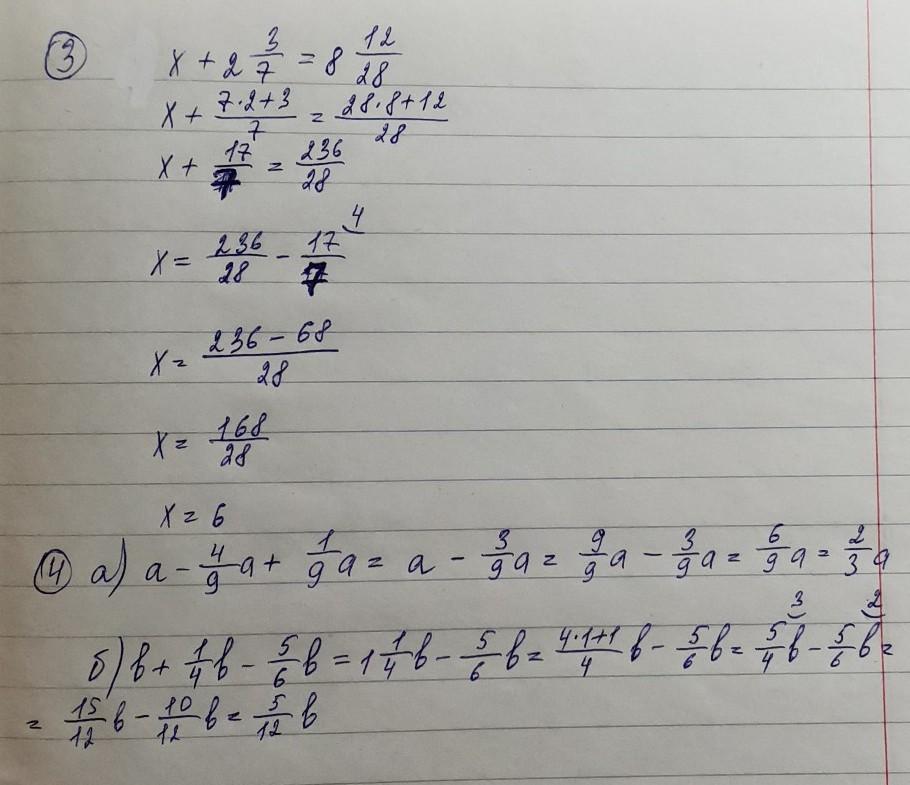 3 x + 2 3/7 = 8 12/28
x + (7·2+3)/7 = (28·8+12)/28
x + 17/7 = 236/28
x = 236/28 - 17/7 4
x = (236 - 68)/28
x = 168/28
x = 6
4 а) a - 4/9 a + 1/9 a = a - 3/9 a = 9/9 a - 3/9 a = 6/9 a = 2/3 a
б) b + 1/4 b - 5/6 b = 1 1/4 b - 5/6 b = (4·1+1)/4 b - 5/6 b = 5/4 b 3 - 5/6 b 2 =
= 15/12 b - 10/12 b = 5/12 b